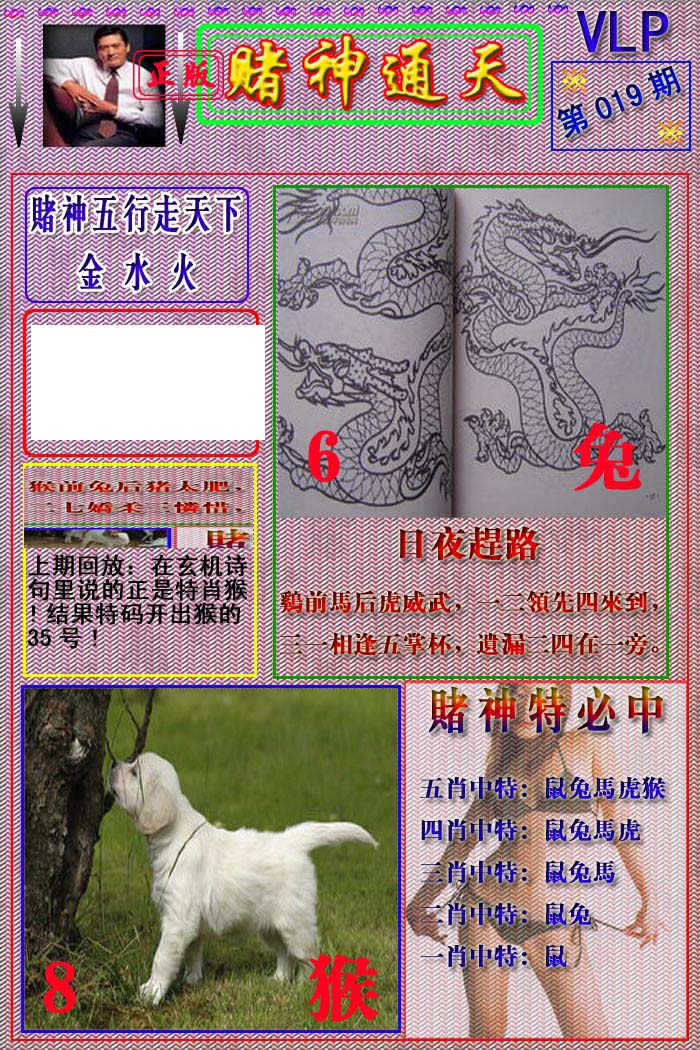 VLP
正版
赌神通天
第 019 期
※
※
賭神五行走天下
金水火
6
兔
猴前兔后猪太肥，
二七娇柔三怜惜，
賭
上期回放：在玄机诗
句里说的正是特肖猴
！结果特码开出猴的
35 号！
日夜趕路
鷄前馬后虎威武，一二領先四來到，
三一相逢五掌杯，遺漏二四在一旁。
8
猴
賭神特必中
五肖中特：鼠兔馬虎猴
四肖中特：鼠兔馬虎
三肖中特：鼠兔馬
二肖中特：鼠兔
一肖中特：鼠